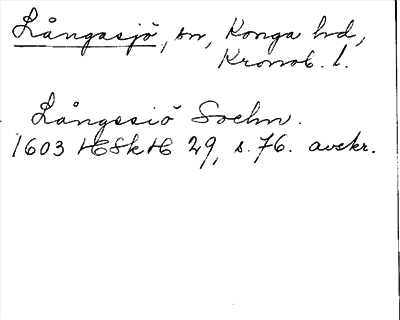 Långasjö, sn, Konga hd,
Kronob. l.
Långesiö Sochn.
1603 HSkH 29, s. 76. avskr.